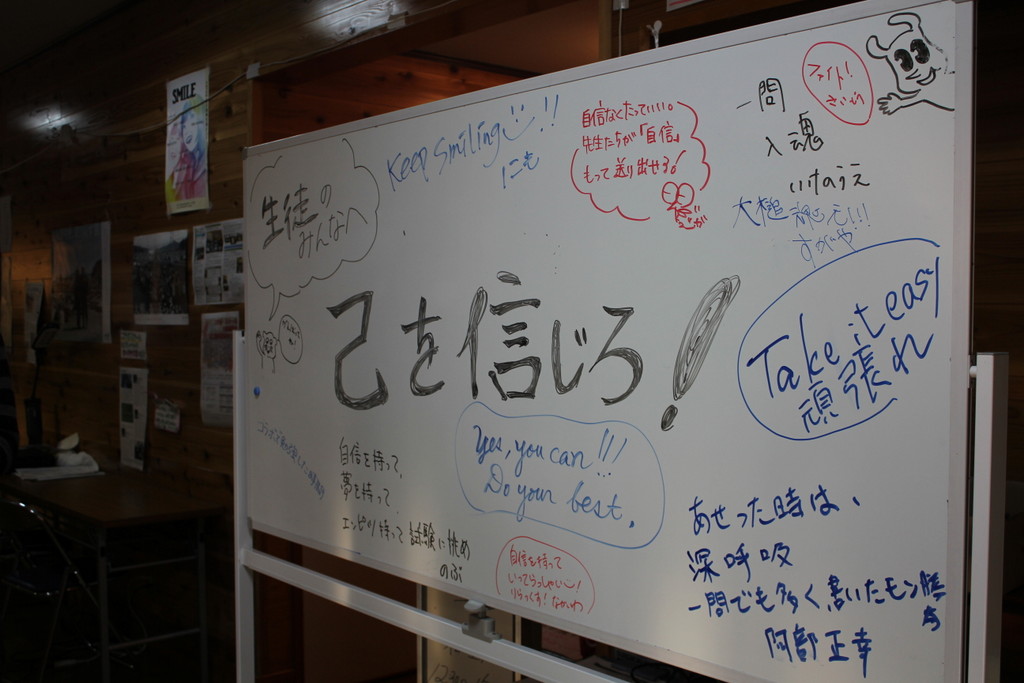 SMILE
生徒の
みんなへ
Keep smiling!!
自信なくたっていい。
先生たちが「自信」
もって送り出せる!
一問
入魂
いけのうえ
ファイト!
すがや
己を信じろ!
Take it easy
頑張れ
Yes, you can!!!
Do your best.
自信を持って、
夢を持って
エンピツ持って試験に挑め
のぶ
自信を持って
いってらっしゃい
りらっくす!
あせった時は、
深呼吸
一問でも多く、書いたモン勝ち
阿部正幸